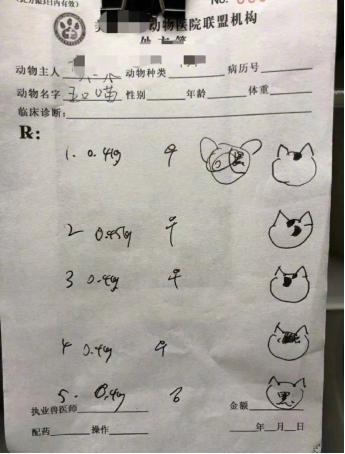 动物医院联盟机构
处方笺
动物主人 动物种类 病历号
动物名字 性别 年龄 体重
临床诊断:
R:
1. 0.41g ♀
2 0.45g ♀
3 0.4g ♀
4 0.4g ♀
5. 0.4g 6
执业兽医师 金额
配药 操作 年 月 日